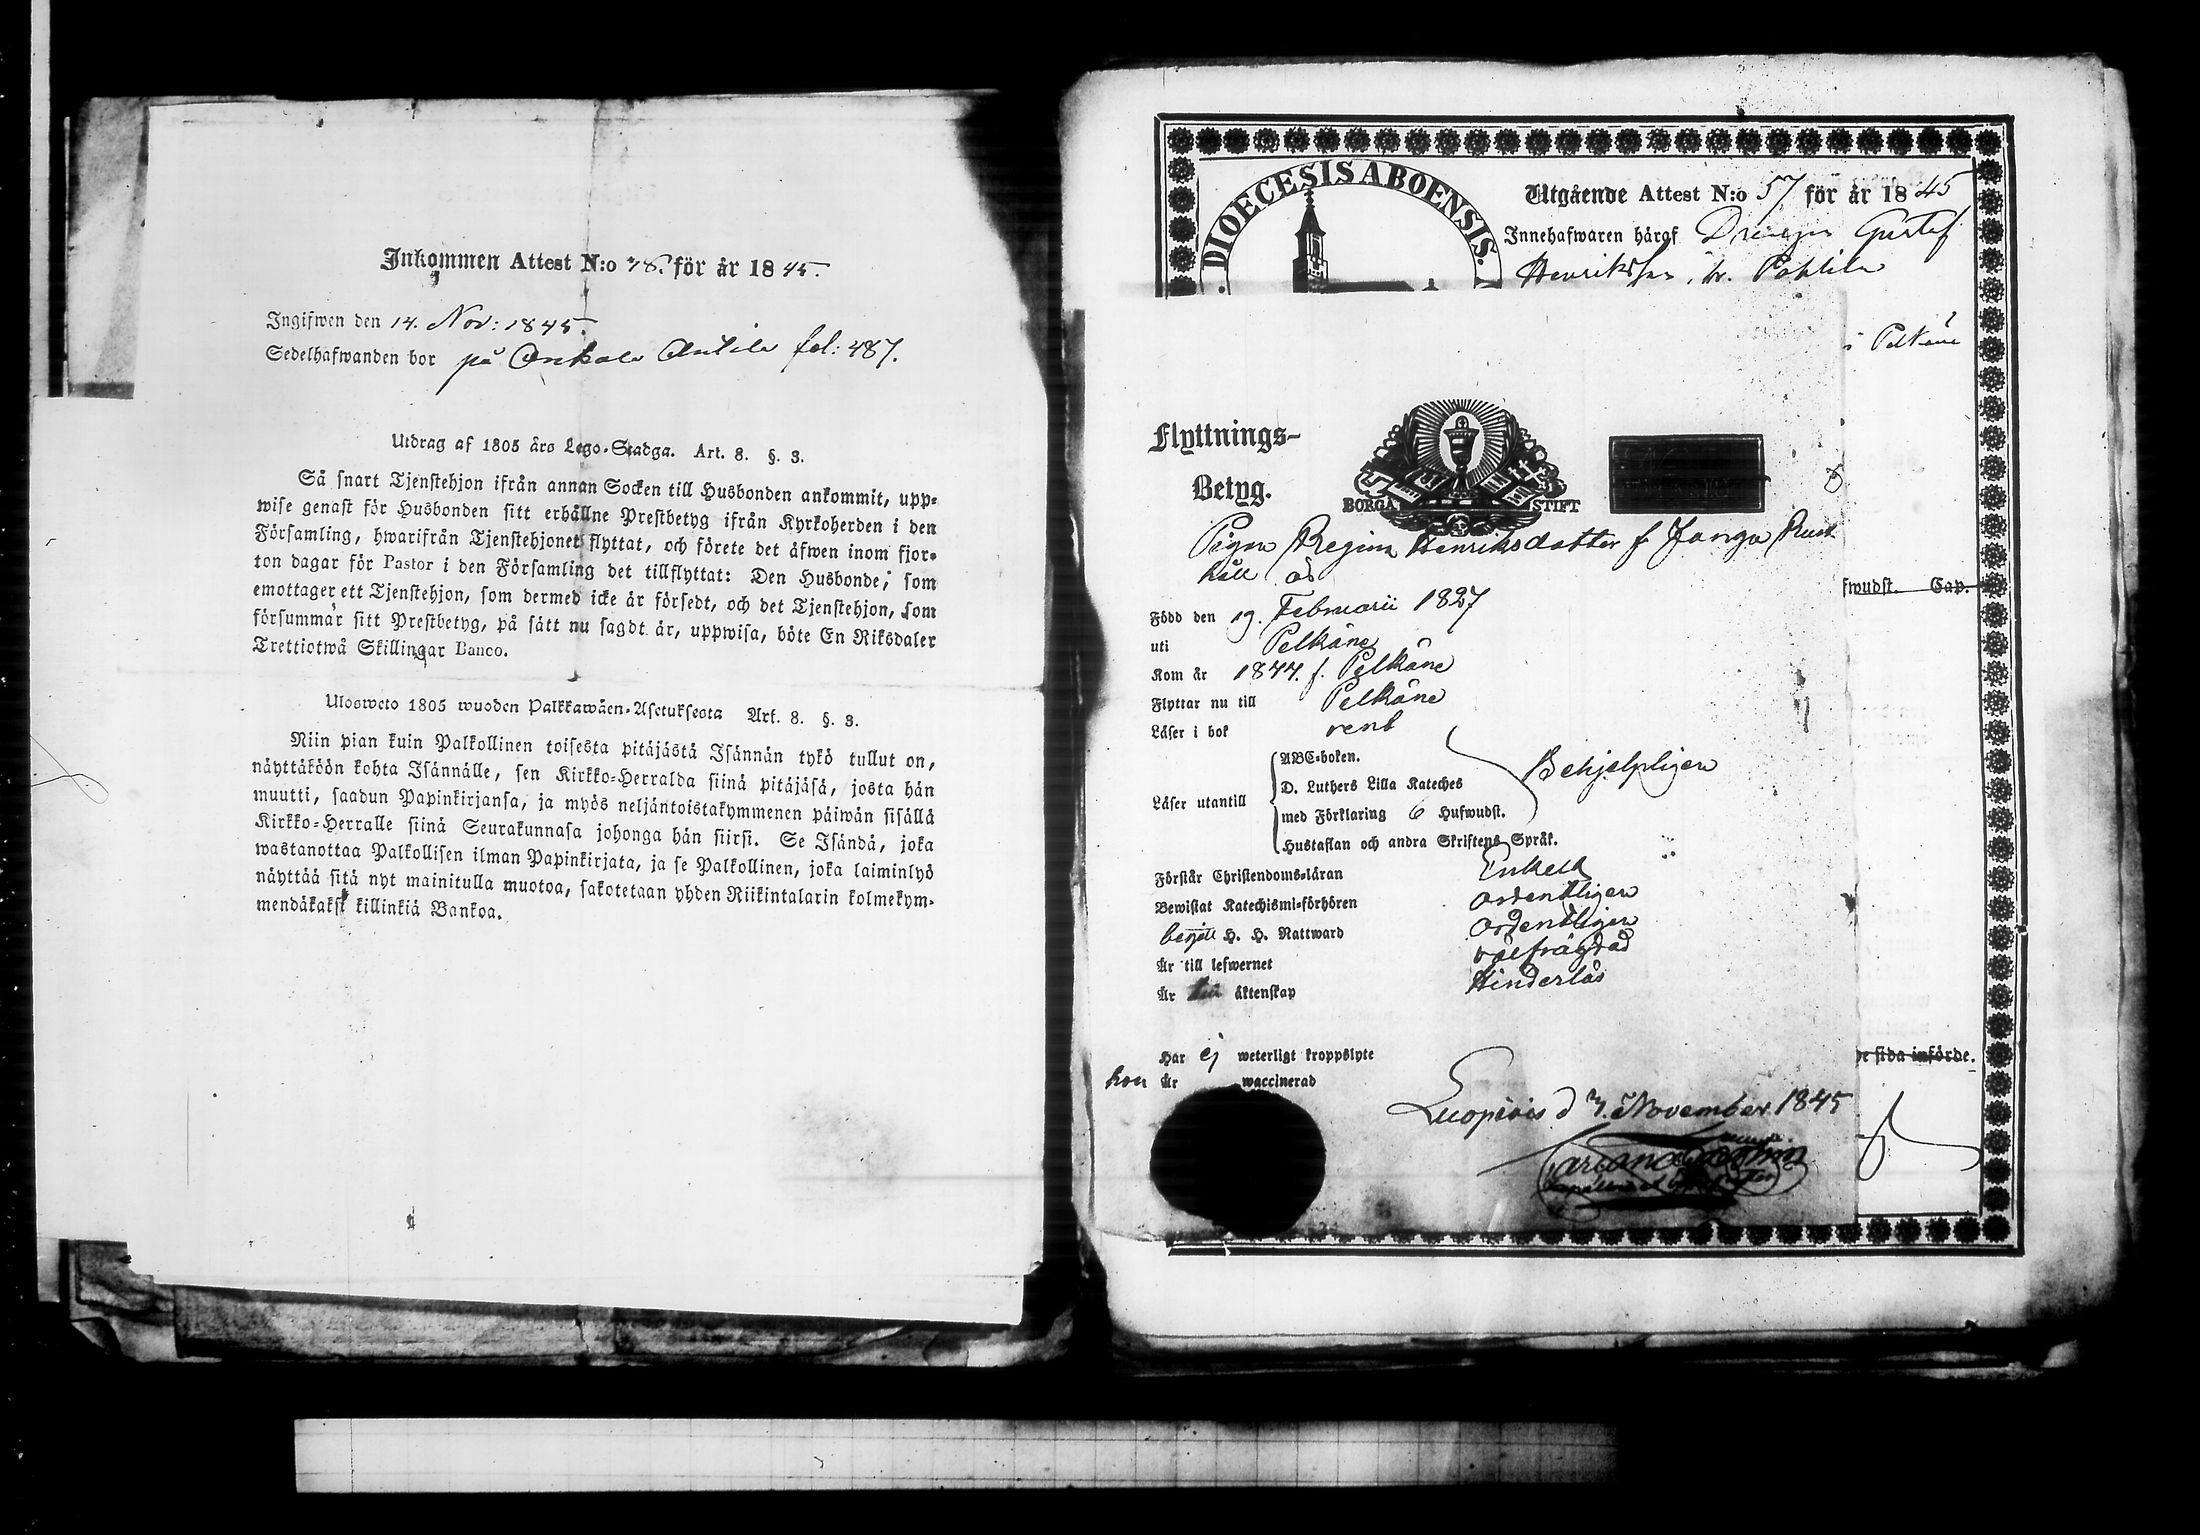 Inkommen Attest N:o 78. för år 1845.
Ingifwen den 14. Nov: 1845.
Sedelhafwanden bor på Onkala Antila fol: 487.
Utdrag af 1805 års Lego-Stadga. Art. 8. §. 3.
Så snart Tjenstehjon ifrån annan Socken till Husbonden ankommit, upp-
wise genast för Husbonden sitt erhållne Prestbetyg ifrån Kyrkoherden i den
Församling, hwarifrån Tjenstehjonet flyttat, och förete det äfwen inom fjor-
ton dagar för Pastor i den Församling det tillflyttat: Den Husbonde, som
emottager ett Tjenstehjon, som dermed icke är försedt, och det Tjenstehjon, som
försummar sitt Prestbetyg, på sätt nu sagdt är, uppwisa, böte En Riksdaler
Trettiotwå Skillingar Banco.
Ulosweto 1805 wuoden Palkkawäen-Asetuksesta Art. 8. §. 3.
Niin pian kuin Palkollinen toisesta pitäjästä Isännän tykö tullut on,
näyttäköön kohta Isännälle, sen Kirkko-Herralda siinä pitäjäsä, josta hän
muutti, saadun Papinkirjansa, ja myös neljäntoistakymmenen päiwän sisällä
Kirkko-Herralle siinä Seurakunnasa johonga hän siirsi. Se Isändä, joka
wastanottaa Palkollisen ilman Papinkirjata, ja se Palkollinen, joka laiminlyö
näyttää sitä nyt mainitulla muotoa, sakotetaan yhden Riikintalarin kolmekym-
mendäkaksi killinkiä Bankoa.
DIOECESIS ABOENSIS.
Utgående Attest N:o 57 för år 1845
Innehafwaren häraf Drengen Gustaf
Henriksson, fr. Pohlila
i Pelkäne
Flyttnings-
Betyg.
BORGÅ STIFT
Pigan Regina Henriksdotter f Janga Rust
håll
Född den 19. Februarii 1827
uti Pelkäne
Kom år 1844. f. Pelkäne
Flyttar nu till Pelkäne
Läser i bok rent
Läser utantill
ABC-boken.
D. Luthers Lilla Kateches
med Förklaring 6 Hufwudst.
Hustaflan och andra Skriftens Språk.
Behjelpligen
fwudst. Cap.
Förstår Christendoms-läran Enkelt
Bewistat Katechismi-förhören ordentligen
begått H. H. Nattward ordentligen
Är till lefwernet välfrägdad
Är till äktenskap Hinderlös
Har ej weterligt kroppslyte
de sida införde.
hon Är waccinerad
Luopiois d 3. November 1845